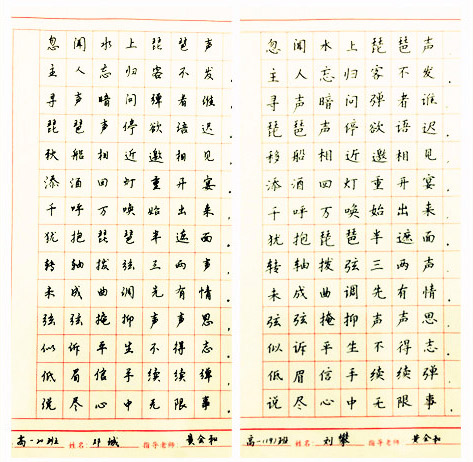 忽闻水上琵琶声,
主人忘归客不发.
寻声暗问弹者谁,
琵琶声停欲语迟.
移船相近邀相见,
添酒回灯重开宴.
千呼万唤始出来,
犹抱琵琶半遮面.
转轴拨弦三两声,
未成曲调先有情.
弦弦掩抑声声思,
似诉平生不得志.
低眉信手续续弹,
说尽心中无限事.
高一20班 姓名: 城 指导老师 黄会和
忽闻水上琵琶声,
主人忘归客不发.
寻声暗问弹者谁,
琵琶声停欲语迟.
移船相近邀相见,
添酒回灯重开宴.
千呼万唤始出来,
犹抱琵琶半遮面.
转轴拨弦三两声,
未成曲调先有情.
弦弦掩抑声声思,
似诉平生不得志.
低眉信手续续弹,
说尽心中无限事.
高一(19)班 姓名: 刘攀 指导老师: 黄会和